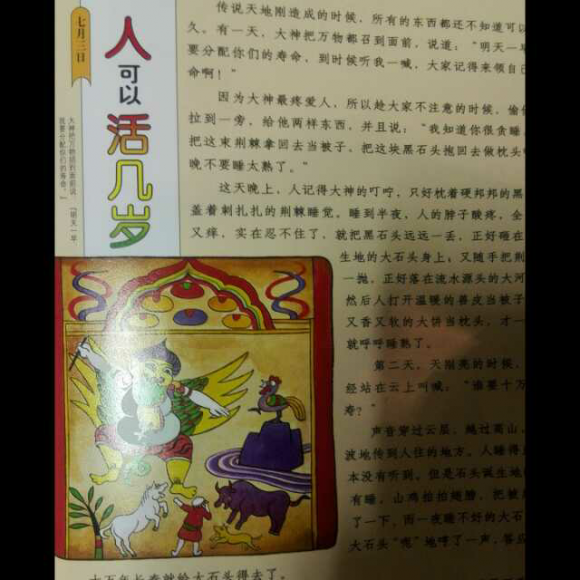 七月三日
人可以活几岁
大神把万物招到面前说，“明天一早
我要分配你们的寿命。”
传说天地刚造成的时候，所有的东西都还不知道可以
久。有一天，大神把万物都召到面前，说道：“明天一早
要分配你们的寿命，到时候听我一喊，大家记得来领自己
命啊！”
因为大神最疼爱人，所以趁大家不注意的时候，偷偷
拉到一旁，给他两样东西，并且说：“我知道你很贪睡
把这束荆棘拿回去当被子，把这块黑石头抱回去做枕头
晚不要睡太熟了。”
这天晚上，人记得大神的叮咛，只好枕着硬邦邦的黑
盖着刺扎扎的荆棘睡觉。睡到半夜，人的脖子酸疼，全
又痒，实在忍不住了，就把黑石头远远一丢，正好砸在
生地的大石头身上；又随手把荆
一抛，正好落在流水源头的大河
然后人打开温暖的兽皮当被子
又香又软的大饼当枕头，才一
就呼呼睡熟了。
第二天，天刚亮的时候，
经站在云上叫喊：“谁要十万
寿？”
声音穿过云层，越过高山，
波地传到人住的地方。人睡得
本没有听到。但是石头诞生地
有睡，山鸡拍拍翅膀，把被
了一下，而一夜睡不好的大石
大石头“呃”地哼了一声，答应
十万年长寿就给大石头得去了。